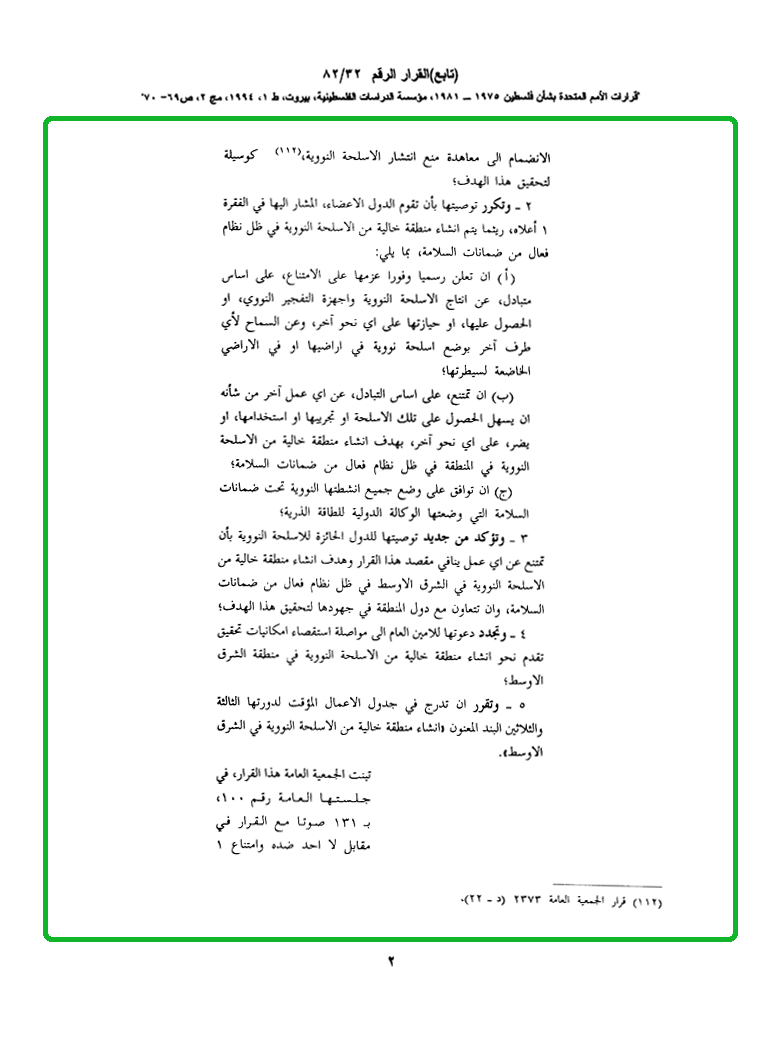 (تابع)القرار الرقم ٨٢/٣٢
"قرارات الأمم المتحدة بشأن فلسطين ١٩٧٥ ــ ١٩٨١، مؤسسة الدراسات الفلسطينية، بيروت، ط ١، ١٩٩٤، مج ٢، ص٦٩- ٧٠"
الانضمام الى معاهدة منع انتشار الاسلحة النووية،(١١٢) كوسيلة
لتحقيق هذا الهدف؛
٢ ــ وتكرر توصيتها بأن تقوم الدول الاعضاء، المشار اليها في الفقرة
١ أعلاه، ريثما يتم انشاء منطقة خالية من الاسلحة النووية في ظل نظام
فعال من ضمانات السلامة، بما يلي:
(أ) ان تعلن رسميا وفورا عزمها على الامتناع، على اساس
متبادل، عن انتاج الاسلحة النووية واجهزة التفجير النووي، او
الحصول عليها، او حيازتها على اي نحو آخر، وعن السماح لأي
طرف آخر بوضع اسلحة نووية في اراضيها او في الاراضي
الخاضعة لسيطرتها؛
(ب) ان تمتنع، على اساس التبادل، عن اي عمل آخر من شأنه
ان يسهل الحصول على تلك الاسلحة او تجريبها او استخدامها، او
يضر، على اي نحو آخر، بهدف انشاء منطقة خالية من الاسلحة
النووية في المنطقة في ظل نظام فعال من ضمانات السلامة؛
(ج) ان توافق على وضع جميع انشطتها النووية تحت ضمانات
السلامة التي وضعتها الوكالة الدولية للطاقة الذرية؛
٣ ــ وتؤكد من جديد توصيتها للدول الحائزة للاسلحة النووية بأن
تمتنع عن اي عمل ينافي مقصد هذا القرار وهدف انشاء منطقة خالية من
الاسلحة النووية في الشرق الاوسط في ظل نظام فعال من ضمانات
السلامة، وان تتعاون مع دول المنطقة في جهودها لتحقيق هذا الهدف؛
٤ ــ وتجدد دعوتها للامين العام الى مواصلة استقصاء امكانيات تحقيق
تقدم نحو انشاء منطقة خالية من الاسلحة النووية في منطقة الشرق
الاوسط؛
٥ ــ وتقرر ان تدرج في جدول الاعمال المؤقت لدورتها الثالثة
والثلاثين البند المعنون «انشاء منطقة خالية من الاسلحة النووية في الشرق
الاوسط».
تبنت الجمعية العامة هذا القرار، في
جلستها العامة رقم ١٠٠،
بـ ١٣١ صوتا مع القرار في
مقابل لا احد ضده وامتناع ١
(١١٢) قرار الجمعية العامة ٢٣٧٣ (د ــ ٢٢).
٢